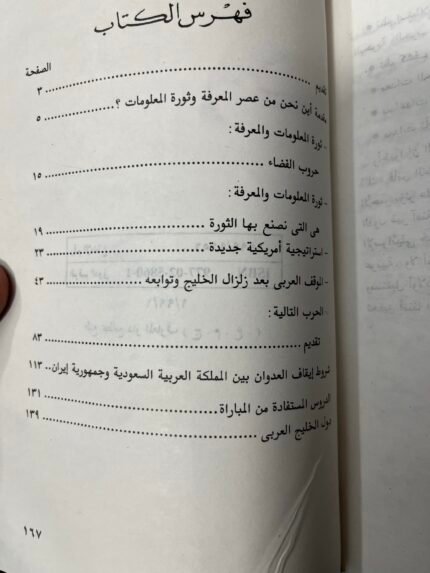 فهرس الكتاب
الصفحة
تقديم ........ ٣
مقدمة أين نحن من عصر المعرفة وثورة المعلومات ؟ ........ ٥
- ثورة المعلومات والمعرفة :
حروب الفضاء ........ ١٥
- ثورة المعلومات والمعرفة :
هى التى نصنع بها الثورة ........ ١٩
- استراتيجية أمريكية جديدة ........ ٢٣
- الموقف العربى بعد زلزال الخليج وتوابعه ........ ٤٣
- الحرب التالية :
تقديم ........ ٨٣
شروط إيقاف العدوان بين المملكة العربية السعودية وجمهورية إيران.. ١١٣
الدروس المستفادة من المباراة ........ ١٣١
دول الخليج العربى ........ ١٣٩
١٦٧